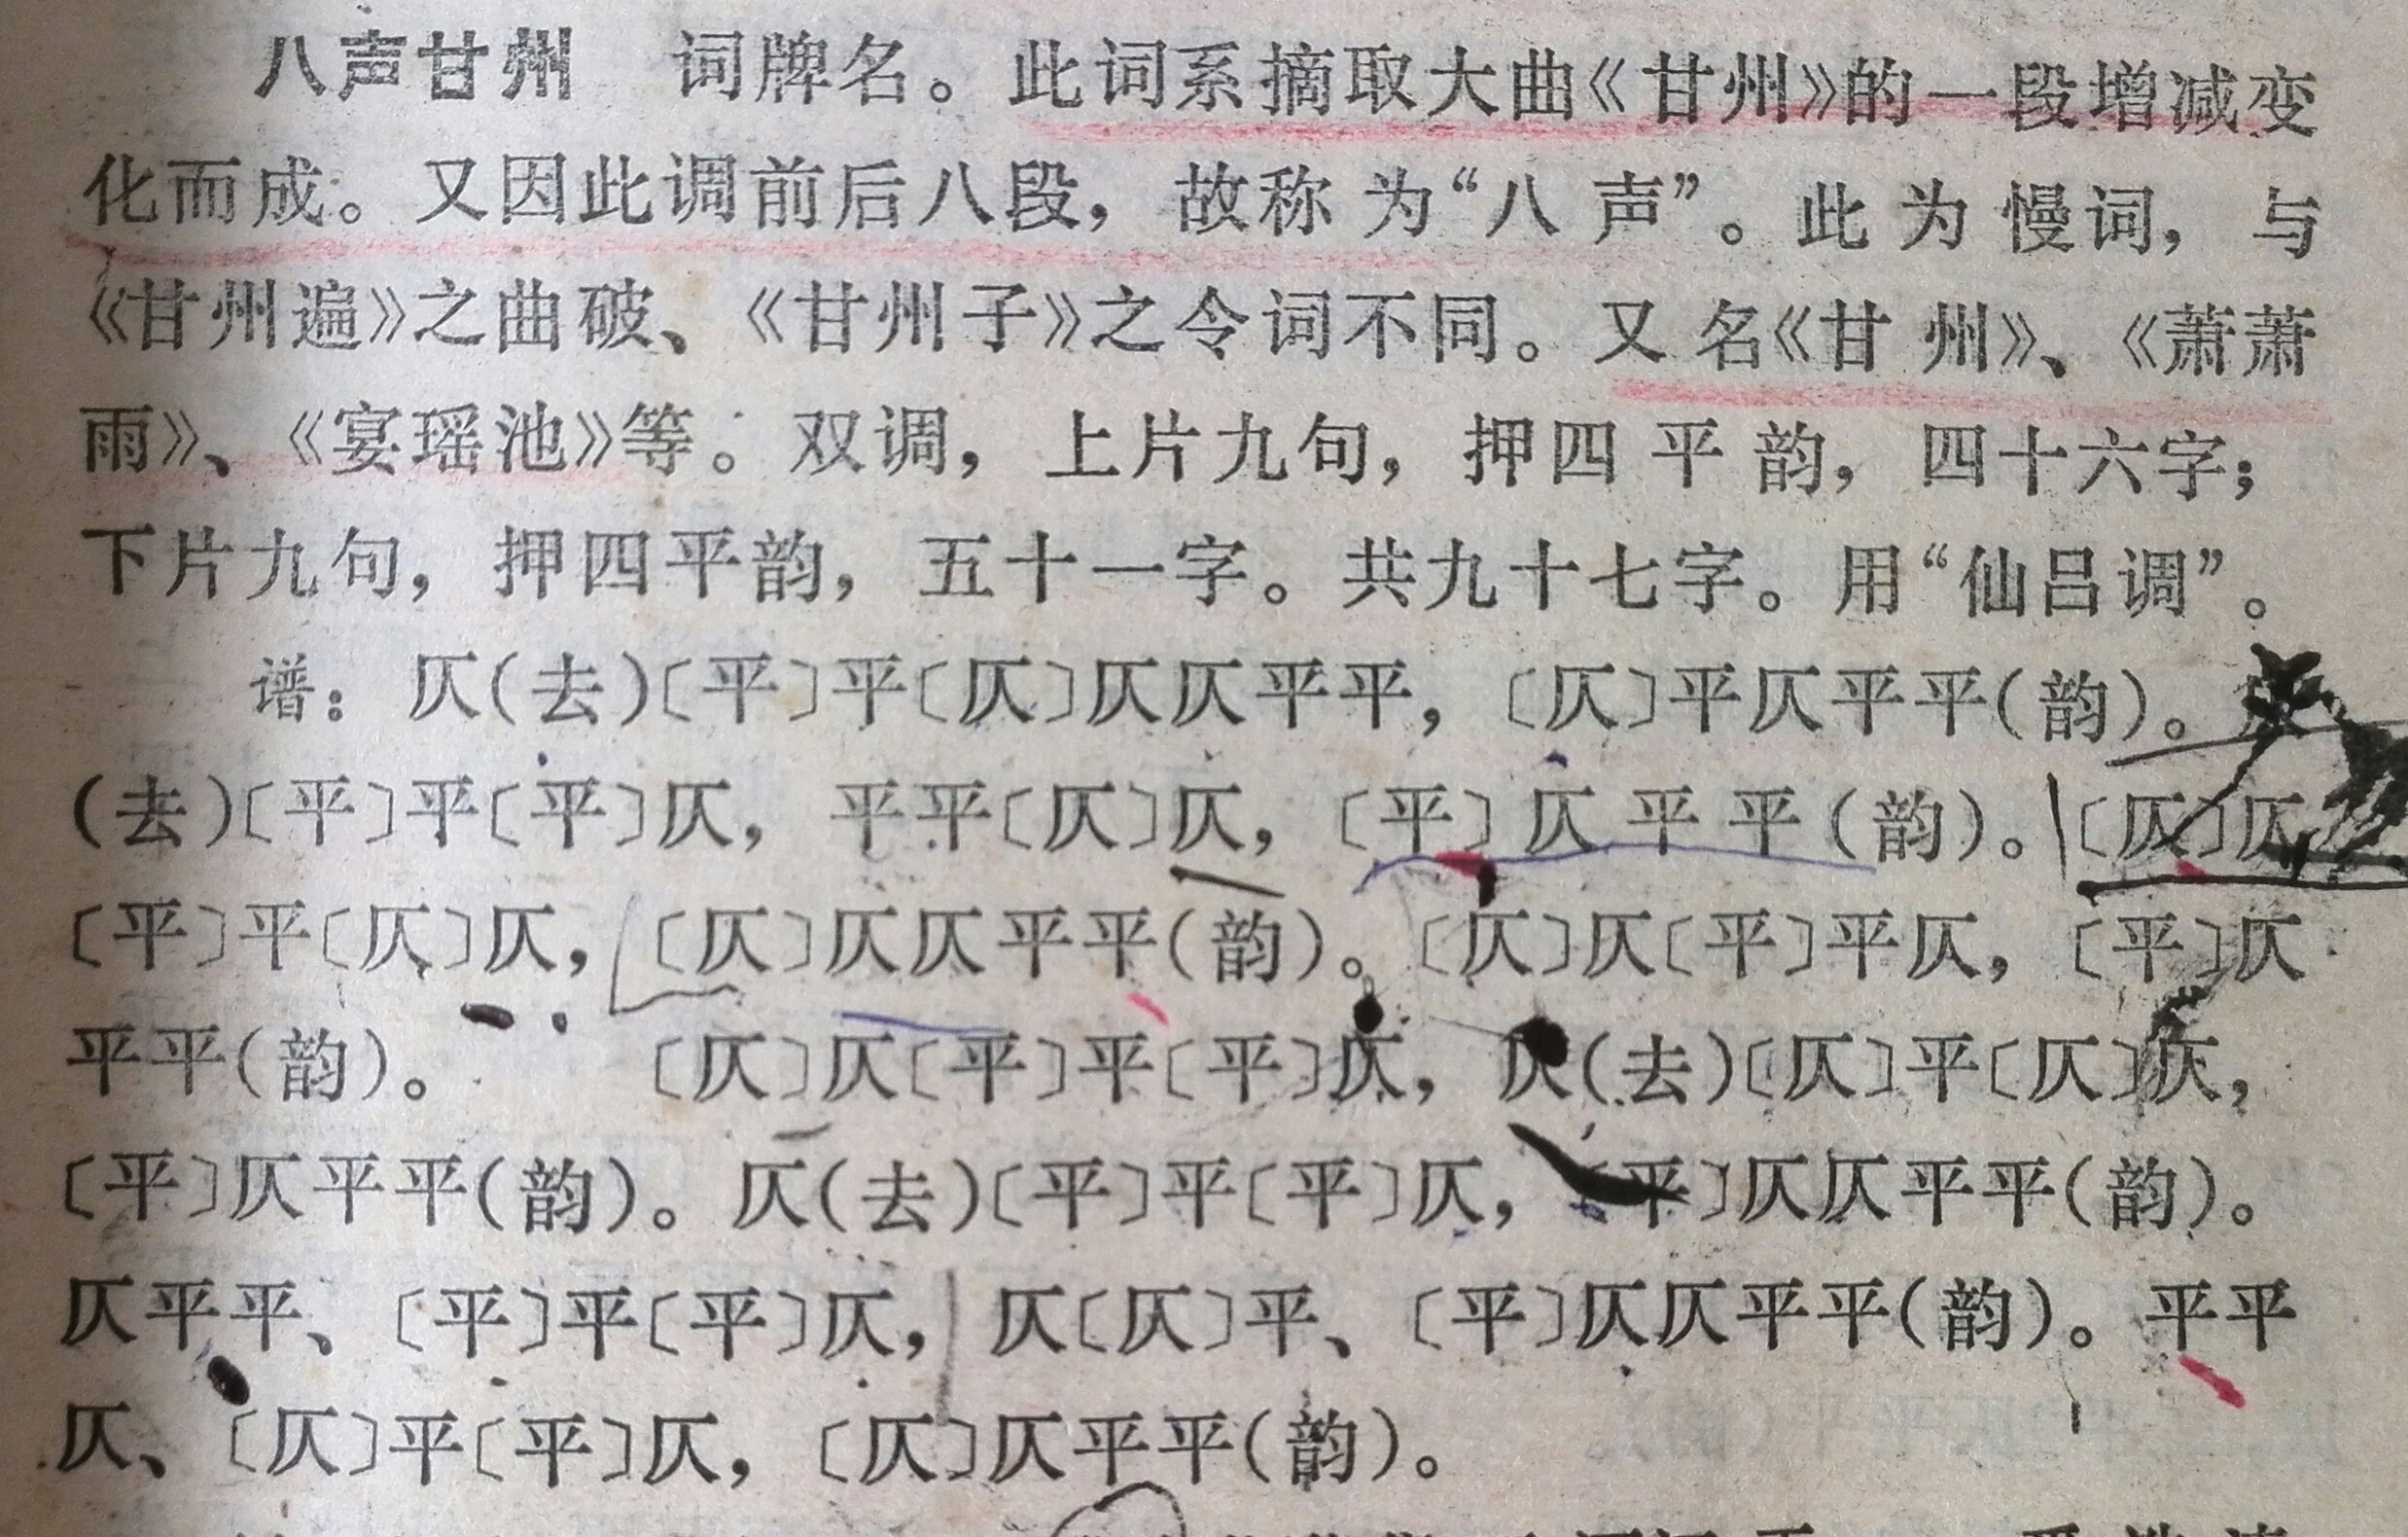 八声甘州 词牌名。此词系摘取大曲《甘州》的一段增减变
化而成。又因此调前后八段，故称为“八声”。此为慢词，与
《甘州遍》之曲破、《甘州子》之令词不同。又名《甘州》、《萧萧
雨》、《宴瑶池》等。双调，上片九句，押四平韵，四十六字；
下片九句，押四平韵，五十一字。共九十七字。用“仙吕调”。
谱：仄(去)〔平〕平〔仄〕仄仄平平，〔仄〕平仄平平(韵)。
(去)〔平〕平〔平〕仄，平平〔仄〕仄，〔平〕仄平平(韵)。〔仄〕仄
〔平〕平〔仄〕仄，〔仄〕仄仄平平(韵)。〔仄〕仄〔平〕平仄，〔平〕仄
平平(韵)。 〔仄〕仄〔平〕平〔平〕仄，仄(去)〔仄〕平〔仄〕仄，
〔平〕仄平平(韵)。仄(去)〔平〕平〔平〕仄，〔平〕仄仄平平(韵)。
仄平平、〔平〕平〔平〕仄，仄〔仄〕平、〔平〕仄仄平平(韵)。平平
仄、〔仄〕平〔平〕仄，〔仄〕仄平平(韵)。